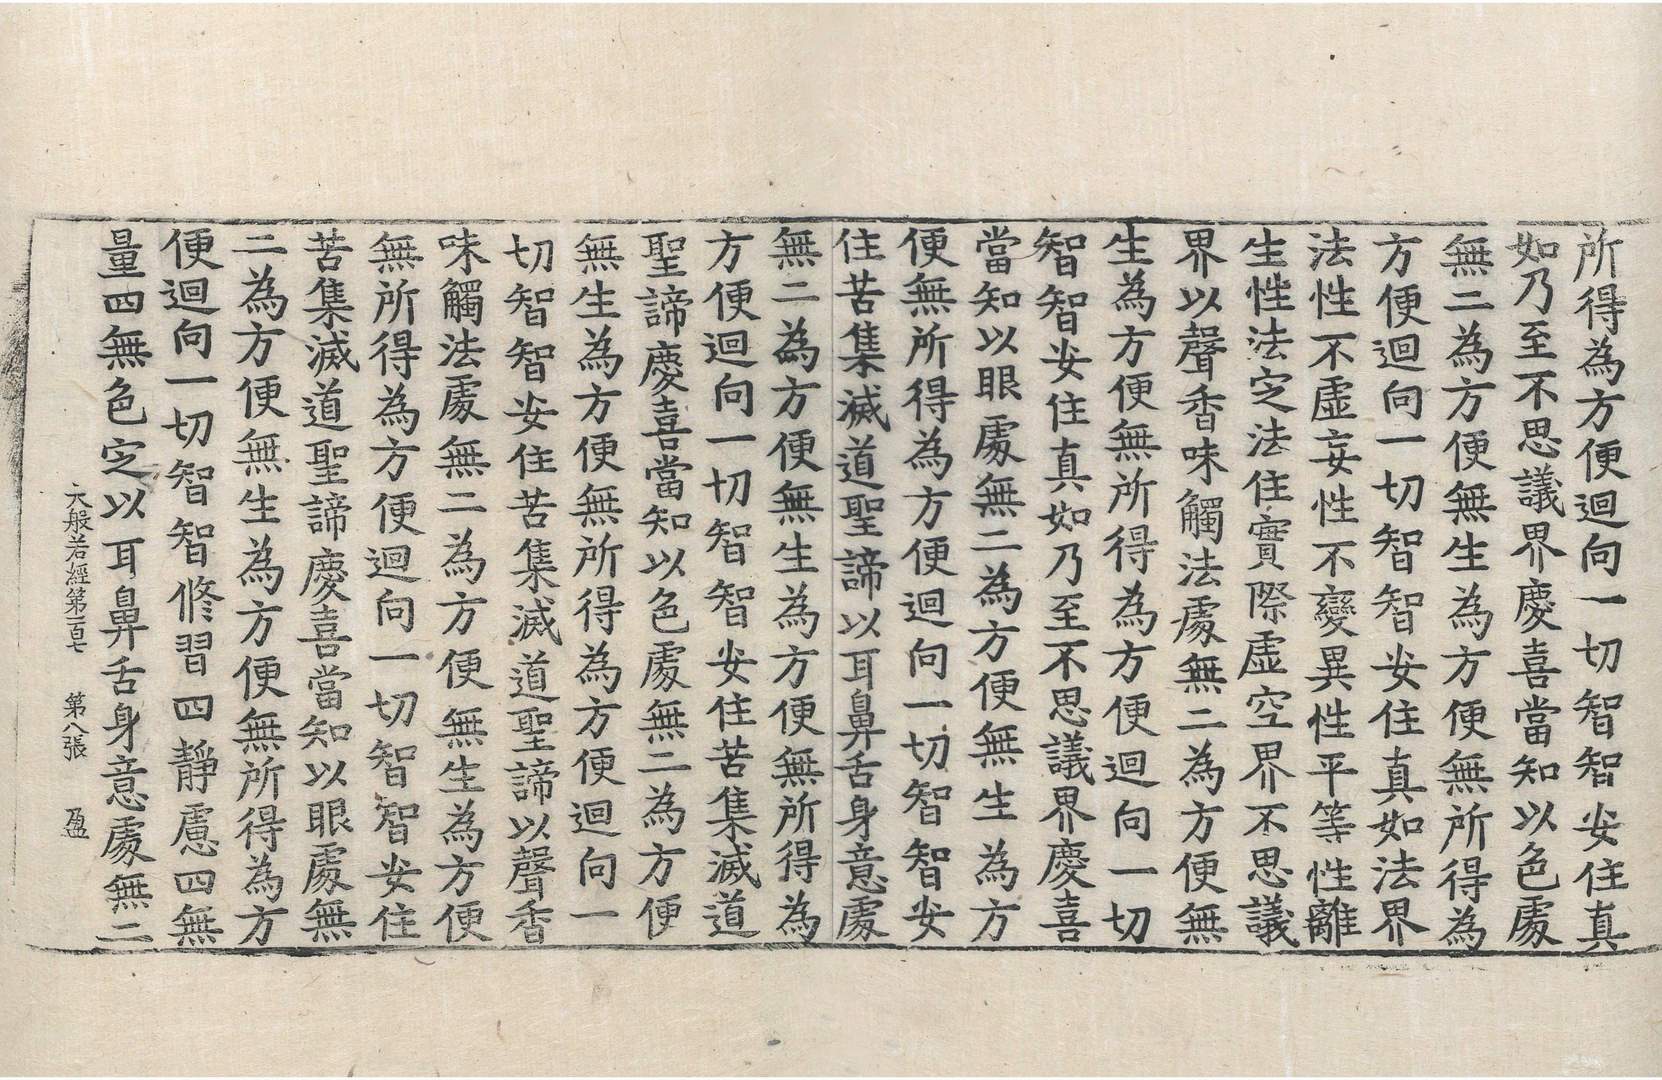 所得為方便迴向一切智智安住真
如乃至不思議界慶喜當知以色處
無二為方便無生為方便無所得為
方便迴向一切智智安住真如法界
法性不虛妄性不變異性平等性離
生性法定法住實際虛空界不思議
界以聲香味觸法處無二為方便無
生為方便無所得為方便迴向一切
智智安住真如乃至不思議界慶喜
當知以眼處無二為方便無生為方
便無所得為方便迴向一切智智安
住苦集滅道聖諦以耳鼻舌身意處
無二為方便無生為方便無所得為
方便迴向一切智智安住苦集滅道
聖諦慶喜當知以色處無二為方便
無生為方便無所得為方便迴向一
切智智安住苦集滅道聖諦以聲香
味觸法處無二為方便無生為方便
無所得為方便迴向一切智智安住
苦集滅道聖諦慶喜當知以眼處無
二為方便無生為方便無所得為方
便迴向一切智智修習四靜慮四無
量四無色定以耳鼻舌身意處無二
大般若經第一百七　第八張　盈